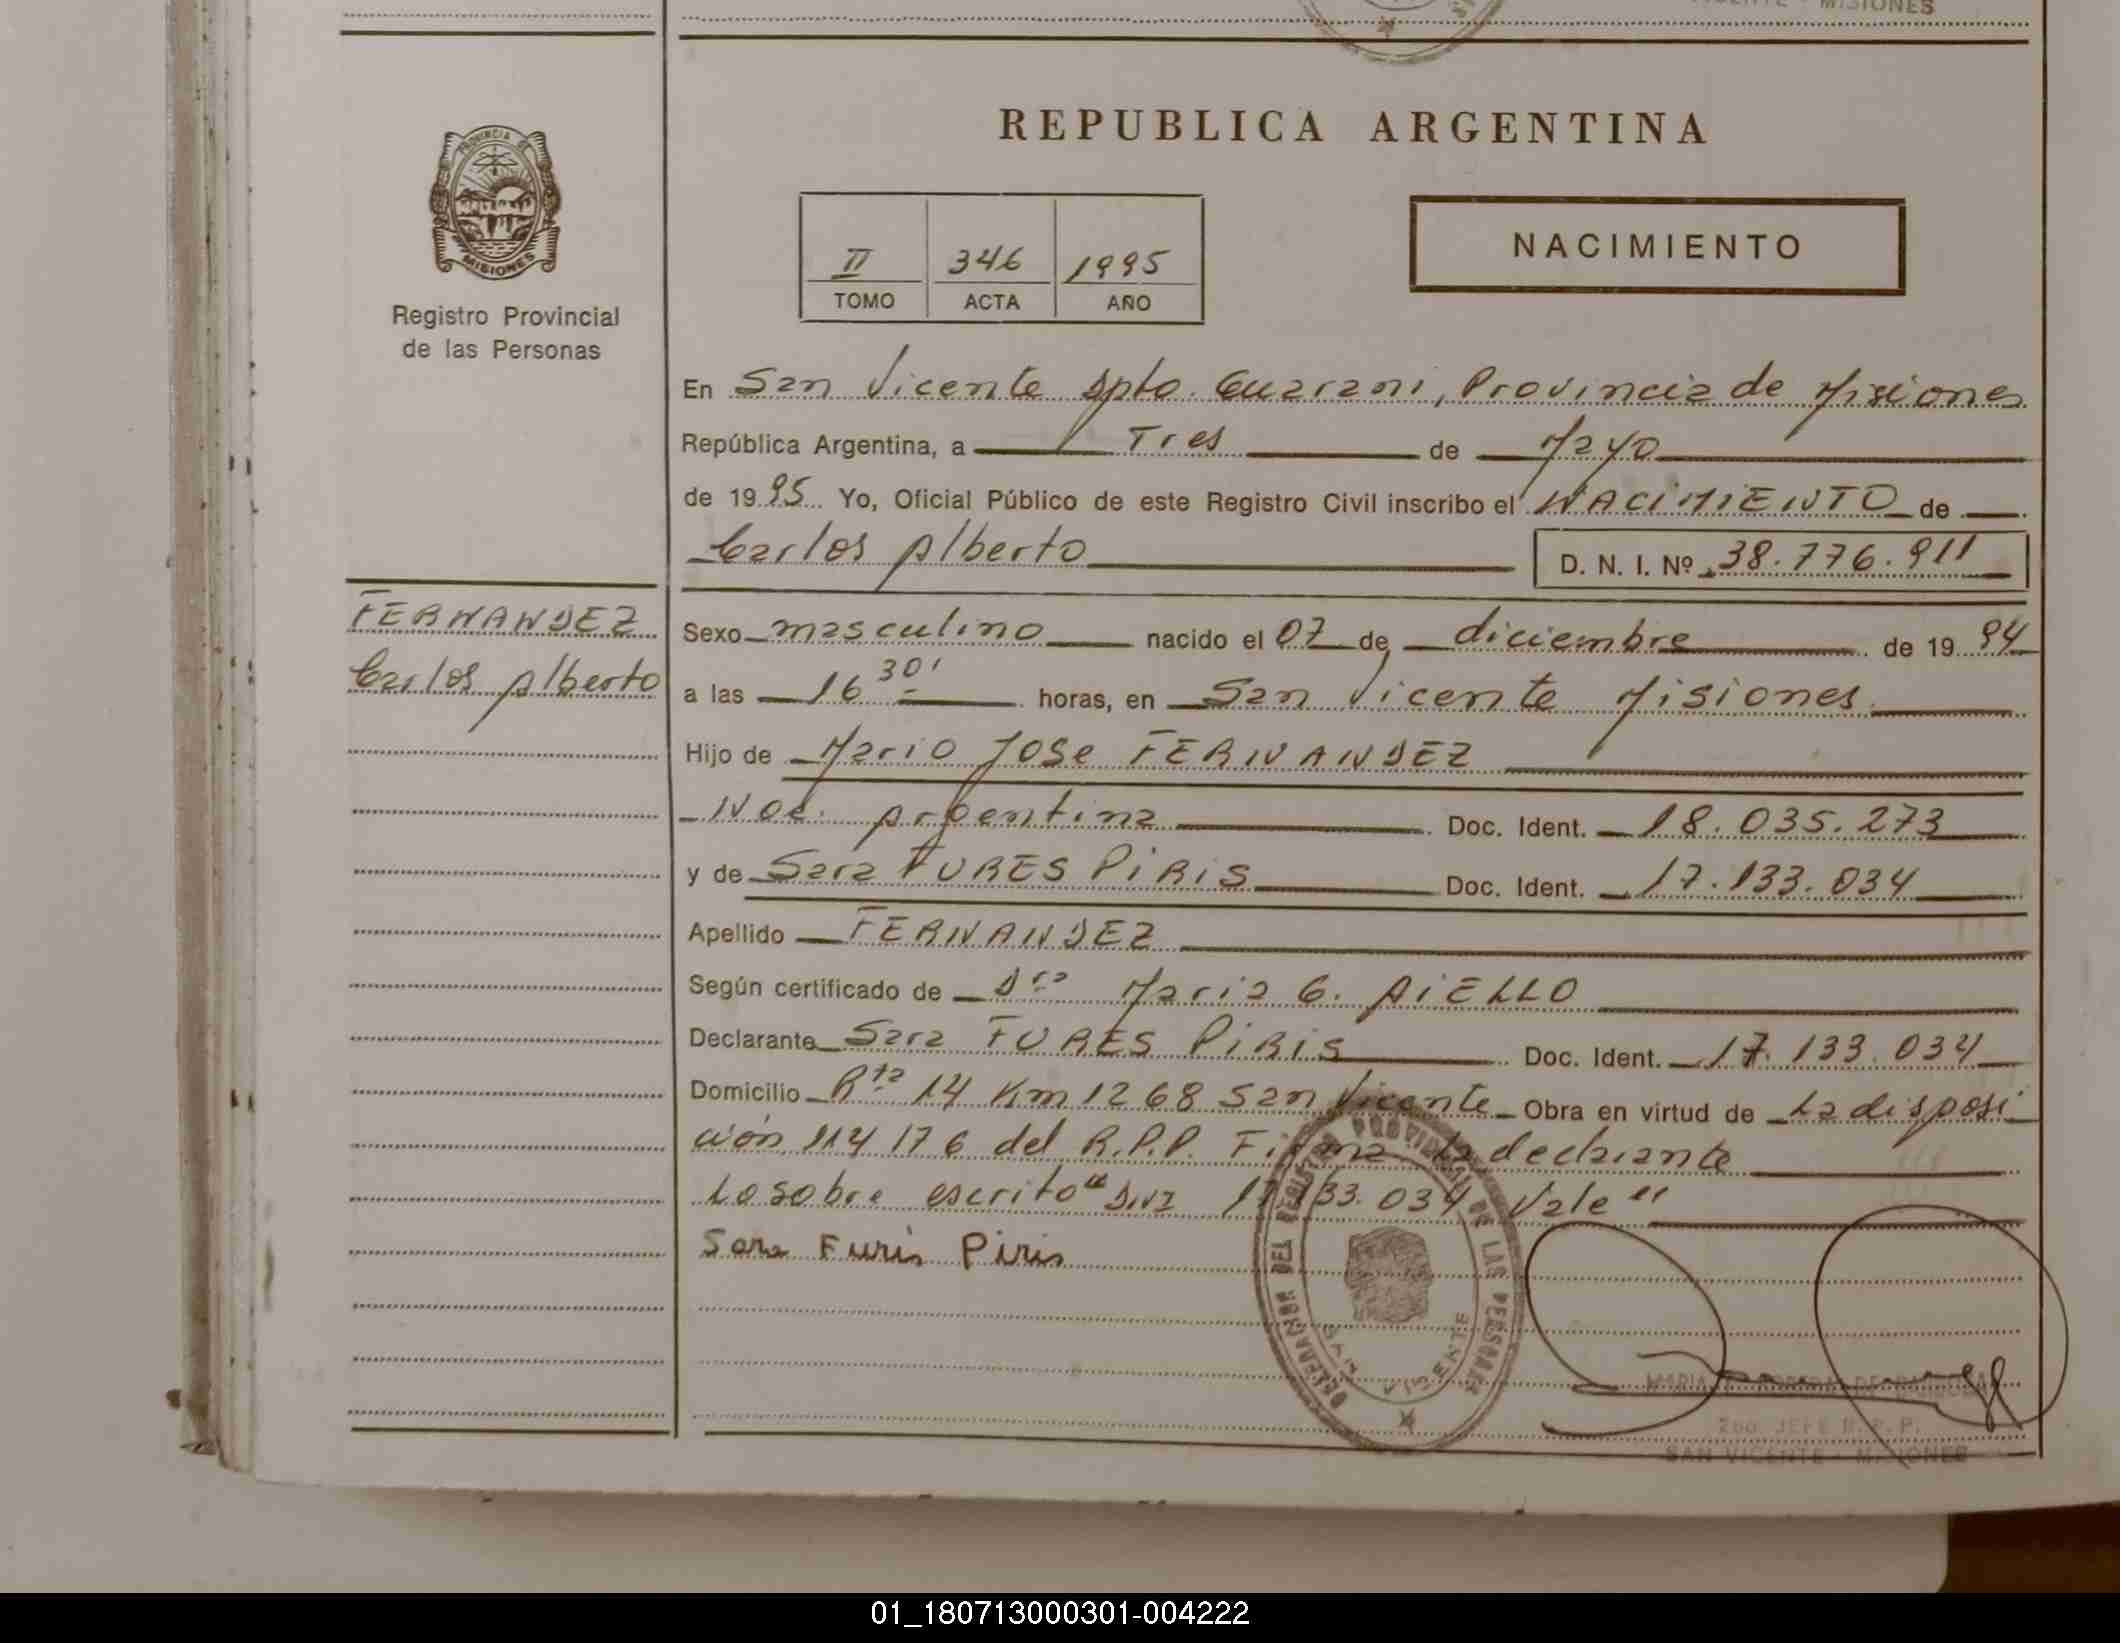 MISIONES
REPUBLICA ARGENTINA
PROVINCIA DE
MISIONES
Registro Provincial
de las Personas
II 346 1995
TOMO ACTA AÑO
NACIMIENTO
En San Vicente Dpto. Guarani, Provincia de Misiones
República Argentina, a Tres de Mayo
de 1995 Yo, Oficial Público de este Registro Civil inscribo el NACIMIENTO de
Carlos Alberto D. N. I. Nº 38.776.911
FERNANDEZ
Carlos Alberto
Sexo masculino nacido el 07 de diciembre de 1994
a las 16 30' horas, en San Vicente Misiones
Hijo de Mario Jose FERNANDEZ
Nac. Argentina Doc. Ident. 18.035.273
y de Sara FURES PiRiS Doc. Ident. 17.133.034
Apellido FERNANDEZ
Según certificado de Dra Maria G. AiELLO
Declarante Sara FURES PiRiS Doc. Ident. 17.133.034
Domicilio Rta 14 Km 1268 San Vicente Obra en virtud de La disposi
ción 114176 del R.P.P. Firma La declarante
Lo sobre escrito " 17.133.034 Vale"
Sara Furis Piris
DELEGACION DEL REGISTRO PROVINCIAL DE LAS PERSONAS
SAN VICENTE
2do. JEFE R. P. P.
SAN VICENTE - MISIONES
01_180713000301-004222